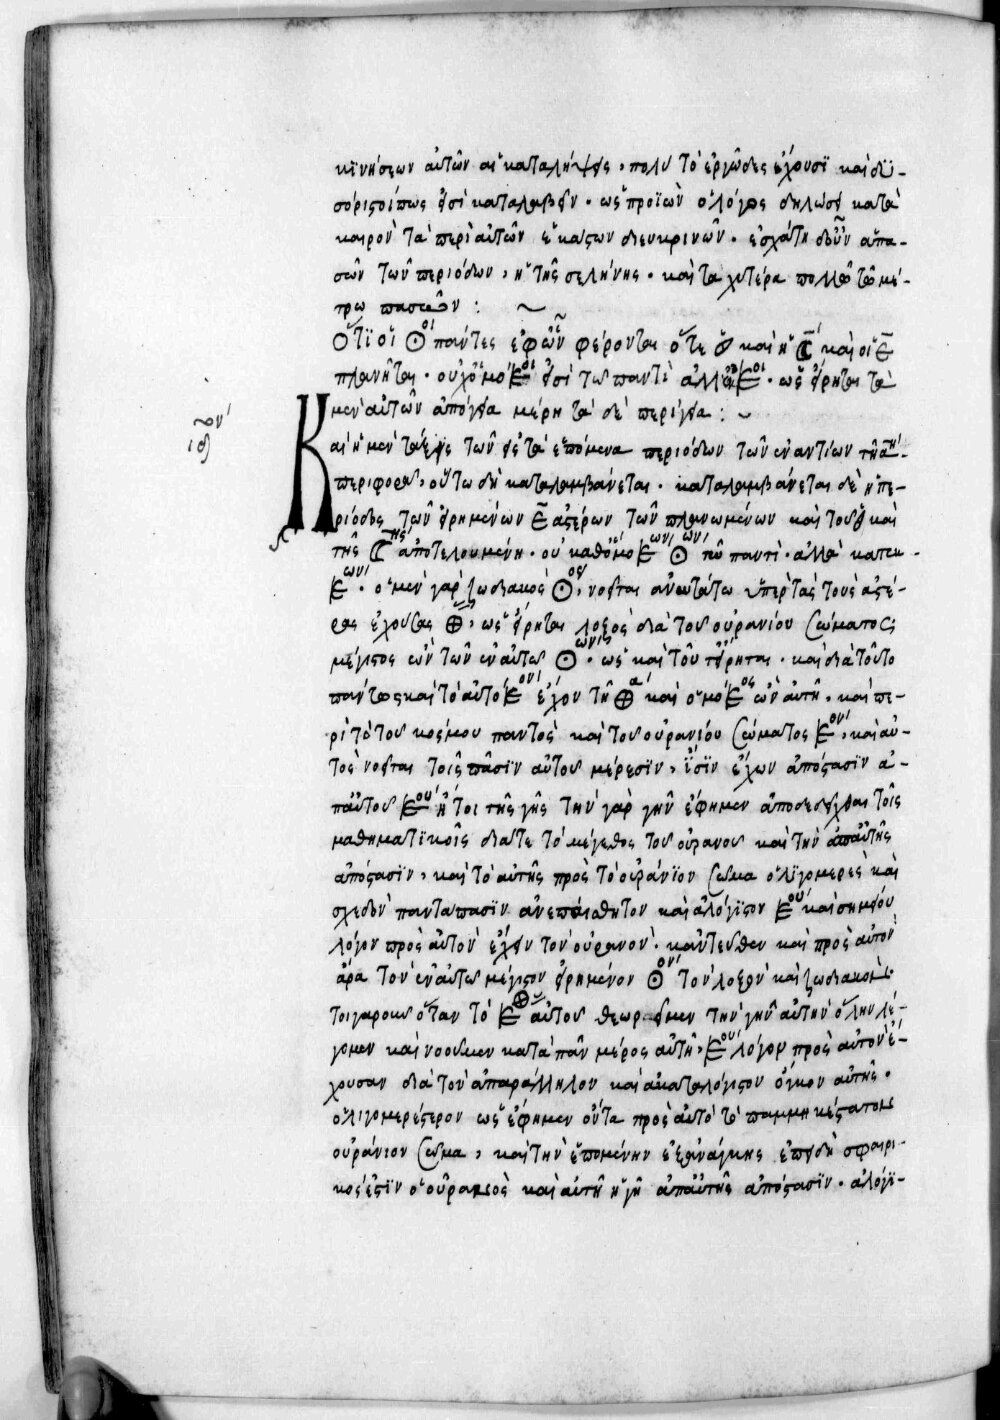 κϊνήσεων αὐτῶν αἱ καταλήψεις, πολὺ τὸ ἐργῶδες ἔχουσϊ καὶ δυ-
σόριστοί πως εἰσὶ καταλαβεῖν. ὡς προϊὼν ὁ λόγος δηλώσει κατὰ
καιρὸν τὰ περὶ αὐτῶν ἑκάστων διευκρινῶν. ἐσχάτη δ' οὖν ἁπα-
σῶν τῶν περιόδων, ἡ τῆς σελήνης. καὶ ταχυτέρα πολλῶ τῶ μέ-
τρω πασῶν :
Ὅτϊ οἱ ☉οι πάντες ἐφ' ὧν φέρονται ὅτε καὶ ἡ ☾ καὶ οἱ ε̄
πλανῆται. οὐχ ὁμόκοι εἰσὶ τῶ παντὶ ἀλλ' ἔκκοι. ὡς εἴρηται τὰ
μὲν αὐτῶν ἀπόγεια μέρη τὰ δὲ περίγεια :
Καὶ ἡ μὲν τάξις τῶν εἰς τὰ ἑπόμενα περιόδων τῶν ἐναντίων τῆ α η
περιφορᾶς, οὕτω δὴ καταλαμβάνεται. καταλαμβάνεται δὲ ἡ πε-
ρίοδος τῶν εἰρημένων ε̄ ἀστέρων τῶν πλανωμένων καὶ τοῦ καὶ
τῆς ☾ης ἀποτελουμένη. οὐ καθ' ὁμοκων ☉ων τῶ παντὶ. ἀλλὰ κατ' ἐκ-
κων. ὁ μὲν γὰρ ζωδιακὸς ☉ος, νοεῖται ἀνωτάτω ὑπὲρ τὰς τοὺς ἀστέ-
ρας ἐχούσας ⊕, ὡς εἴρηται λοξὸς διὰ τοῦ οὐρανίου σώματος
μέγιστος ὢν τῶν ἐν αὐτῶ ☉ων. ὡς καὶ τοῦτ' εἴρηται. καὶ διὰ τοῦτο
πάντως καὶ τὸ αὐτὸ κον ἔχον τῆ ⊕α καὶ ὁμόκος ὢν αὐτῆ. καὶ πε-
ρὶ τὸ τοῦ κόσμου παντὸς καὶ τοῦ οὐρανίου σώματος κον, καὶ αὐ-
τὸς νοεῖται τοῖς πᾶσϊν αὐτοῦ μέρεσϊν, ἴσϊν ἔχων ἀπόστασϊν ἀ-
π' αὐτοῦ κου ἤτοι τῆς γῆς τὴν γὰρ γῆν ἔφημεν ἀποδεδεῖχθαι τοῖς
μαθηματϊκοῖς διά τε τὸ μέγεθος τοῦ οὐρανοῦ καὶ τὴν ἀπ' αὐτῆς
ἀπόστασϊν, καὶ τὸ αὐτῆς πρὸς τὸ οὐράνϊον σῶμα ὀλϊγομερὲς καὶ
σχεδὸν πανταπασϊν ἀνεπαίσθητον καὶ ἀλόγϊστον κου καὶ σημείου
λόγον πρὸς αὐτὸν ἔχειν τὸν οὐρανὸν. κἀντεῦθεν καὶ πρὸς αὐτὸν
ἄρα τὸν ἐν αὐτῶ μέγιστον εἰρημένον ☉ον τὸν λοξὸν καὶ ζωδιακὸν.
τοιγαροῦν ὅταν τὸ κ ⊕ αὐτοῦ θεωροῖμεν τὴν γῆν αὐτὴν ὅλην λέ-
γομεν καὶ νοοῦμεν κατὰ πᾶν μέρος αὐτῆς, κου λόγον πρὸς αὐτὸν ἔ-
χουσαν διὰ τὸν ἀπαράλληλον καὶ ἀκαταλόγιστον ὄγκον αὐτῆς.
ὀλιγομερέστερον ὡς ἔφημεν ὄντα πρὸς αὐτὸ τὸ παμμηκέστατον
οὐράνιον σῶμα, καὶ τὴν ἑπομένην ἐξ ἀνάγκης ἐπειδὴ σφαιρι-
κός ἐστϊν ὁ οὐρανὸς καὶ αὐτὴ ἡ γῆ ἀπ' αὐτῆς ἀπόστασϊν. ἀλόγϊ-